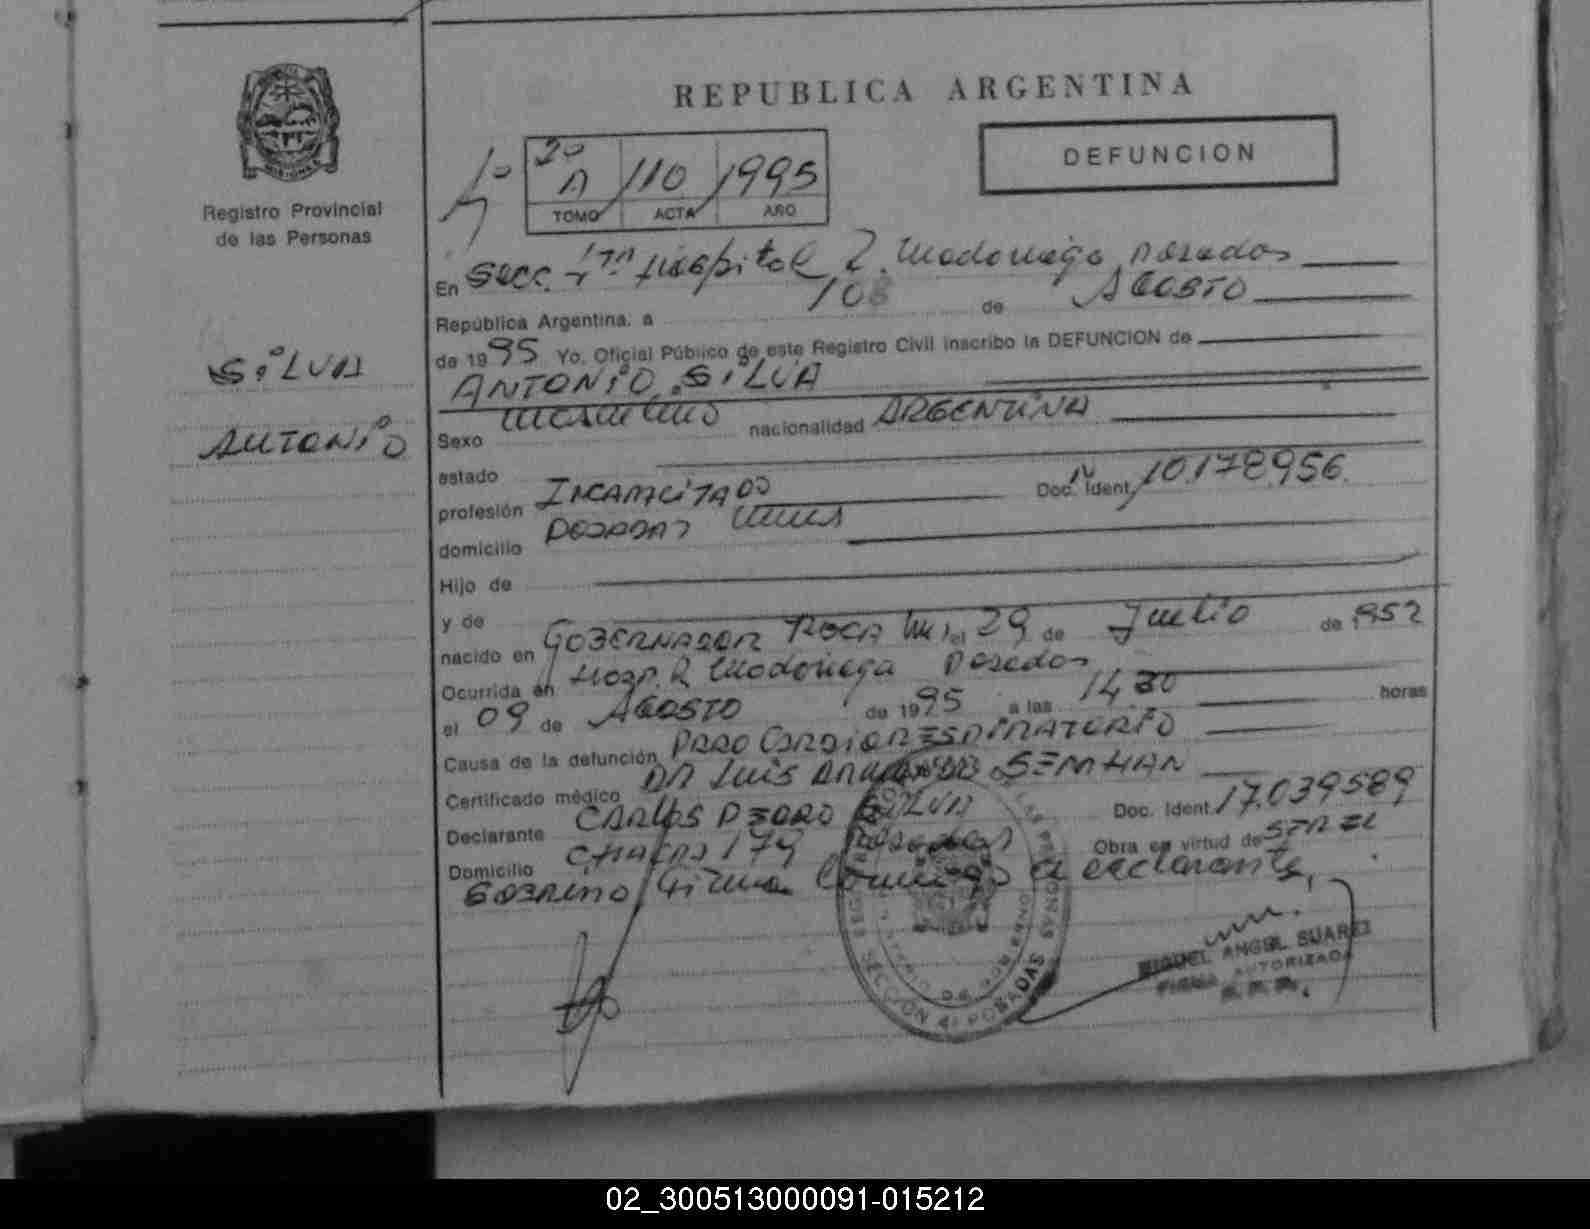 REPUBLICA ARGENTINA
DEFUNCION
2º
A 110 1995
TOMO ACTA AÑO
MISIONES
Registro Provincial
de las Personas
SILVA
ANTONIO
En Secc. 1ra Hospital R. Madariaga Posadas
República Argentina, a 10 de AGOSTO
de 1995 Yo, Oficial Público de este Registro Civil inscribo la DEFUNCION de
ANTONIO SILVA
Sexo masculino nacionalidad ARGENTINA
estado
profesión INCAPACITADO Doc. Ident. Nº 10.178956.
domicilio POSADAS Mnes
Hijo de
y de
nacido en GOBERNADOR ROCA Mnes el 29 de Julio de 1952
Ocurrida en Hosp. R Madariaga Posadas
el 09 de AGOSTO de 1995 a las 14,30 horas
Causa de la defunción PARO CARDIORESPIRATORIO
Certificado médico DR LUIS SEMHAN
Declarante CARLOS PEDRO SILVA Doc. Ident. 17.039589
Domicilio CHACRA 179 Posadas Obra en virtud de SER EL
SOBRINO Firma Conmigo el declarante,
SECCIÓN POSADAS
MIGUEL ANGEL SUAREZ
FIRMA AUTORIZADA
R.P.P.
02_300513000091-015212